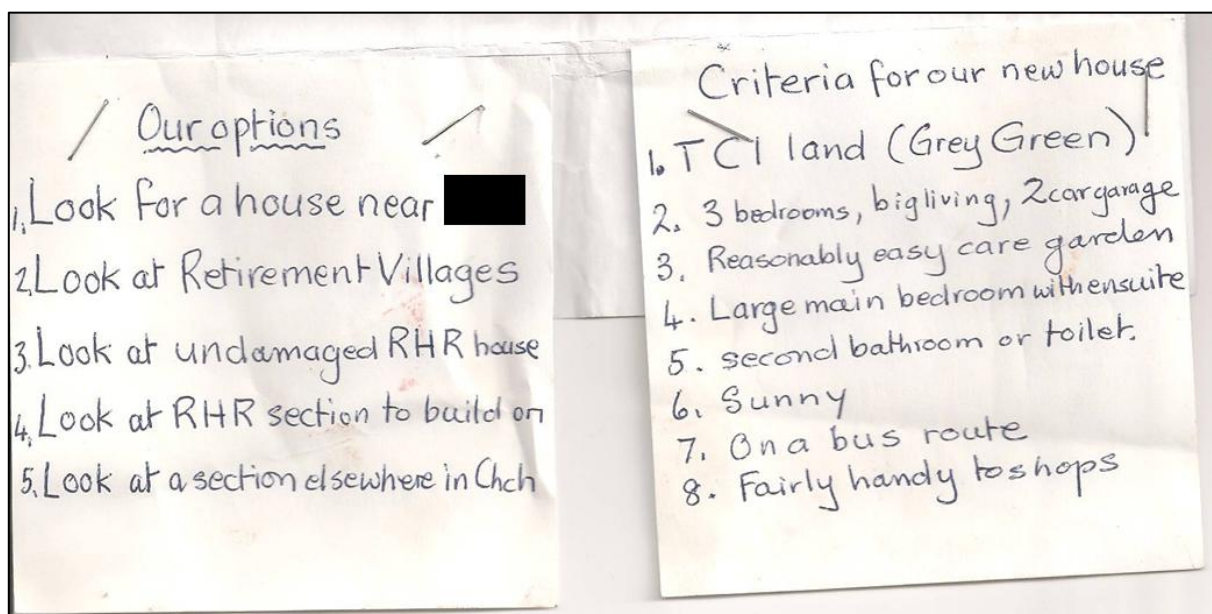 Our options
1. Look for a house near
2. Look at Retirement Villages
3. Look at undamaged RHR house
4. Look at RHR section to build on
5. Look at a section elsewhere in Chch
Criteria for our new house
1. TC1 land (Grey Green)
2. 3 bedrooms, big living, 2 car garage
3. Reasonably easy care garden
4. Large main bedroom with ensuite
5. second bathroom or toilet.
6. Sunny
7. On a bus route
8. Fairly handy to shops